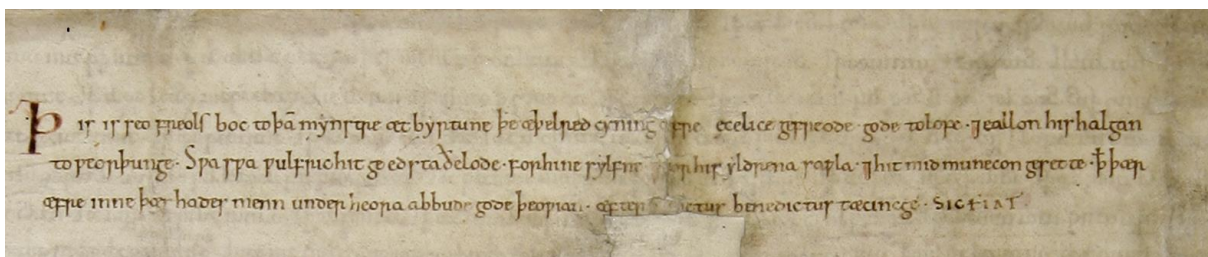 Þis is seo freols boc to þā mynstre æt byrtune þe æþelred cyning æfre ecelice gefreode gode to lofe · ⁊ eallon his halgan
to ƿeorþunge · Sƿa sƿa ƿulfric hit ge edstaðelode · for hine sylfne ⁊ for his yldrena saƿla · ⁊ hit mid munecon gesette · ꝥ þær
æfre inne þæs hades menn under heora abbude gode þeoƿian · æfter benedictus tæcincge · SIC FIAT